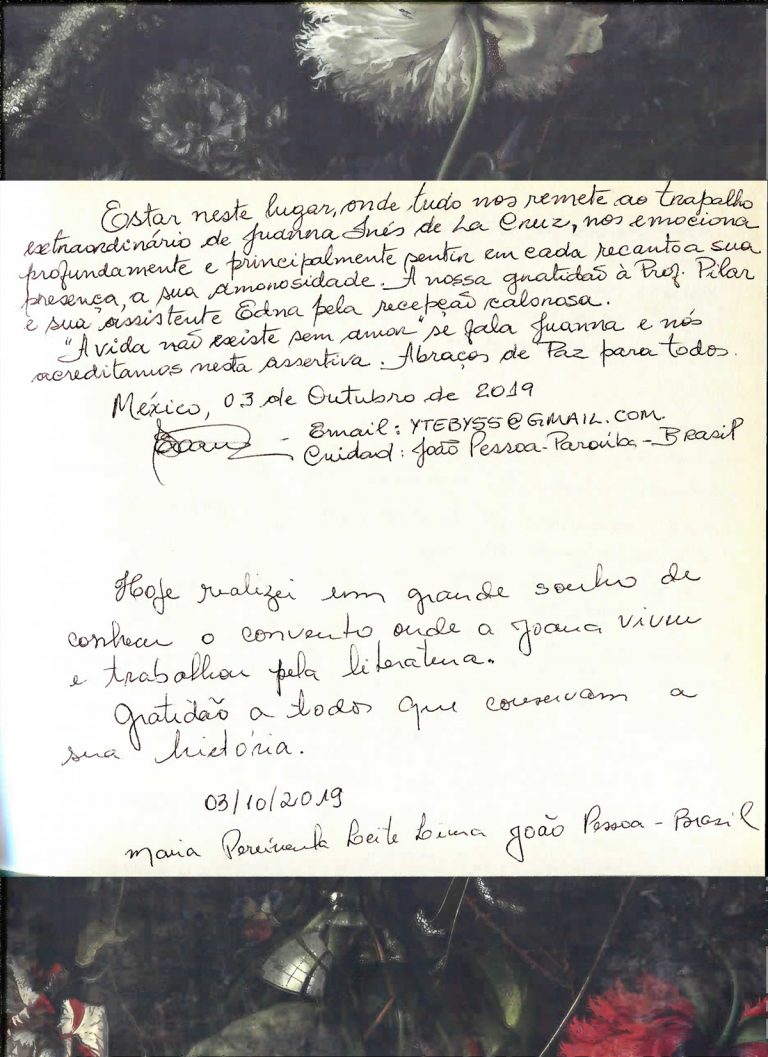 Estar neste lugar, onde tudo nos remete ao trapalho
extraordinário de Juanna Inés de La Cruz, nos emociona
profundamente e principalmente sentir em cada recanto a sua
presença, a sua amorosidade. A nossa gratidão à Prof. Pilar
e sua assistente Edna pela recepção calorosa.
"A vida não existe sem amor" se fala Juanna e nós
acreditamos nesta assertiva. Abraços de Paz para todos.
México, 03 de Outubro de 2019
- Email: YTEBY55@GMAIL.COM
Cuidad: João Pessoa-Paraíba-Brasil
Hoje realizei um grande sonho de
conhecer o convento onde a Joana viveu
e trabalhou pela literatura.
Gratidão a todos que conservam a
sua história.
03/10/2019
Maria Leite Lima João Pessoa - Brasil